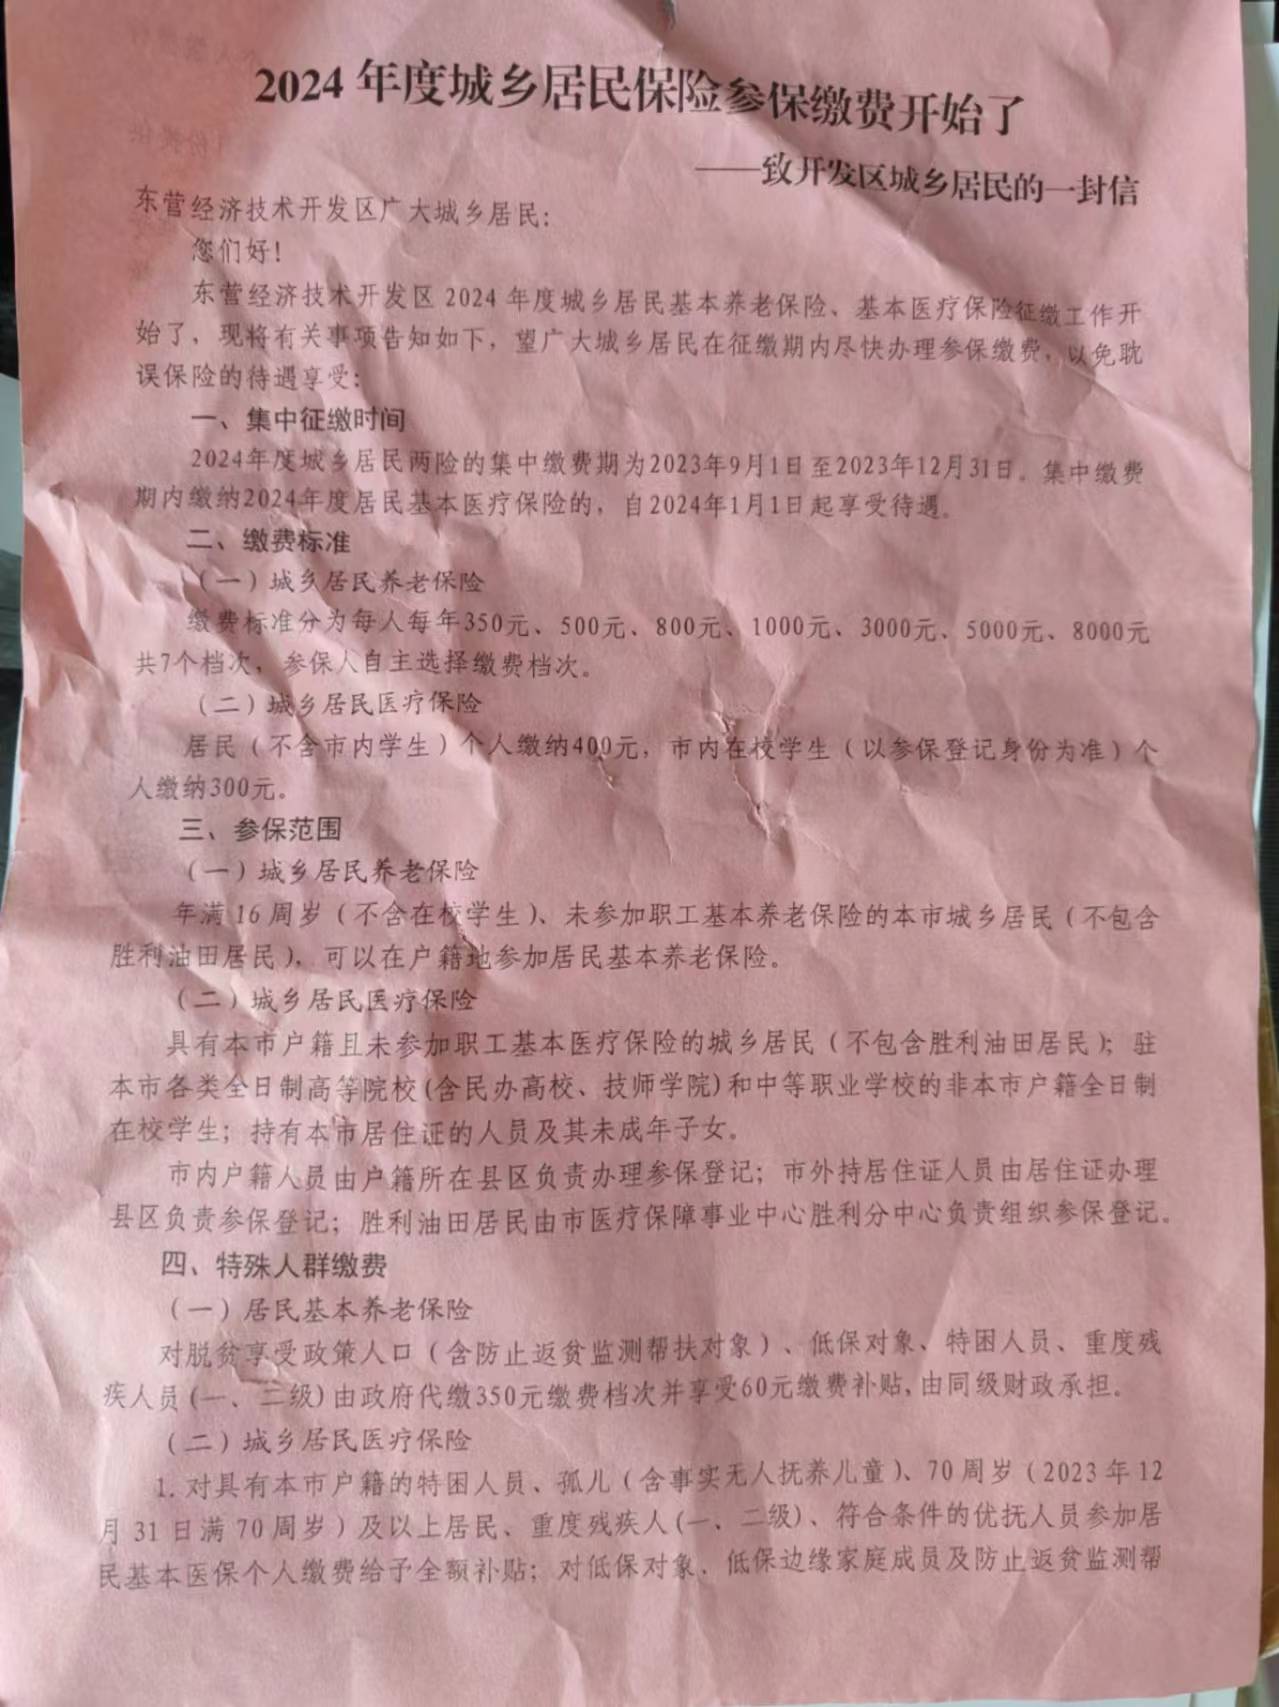 2024 年度城乡居民保险参保缴费开始了
——致开发区城乡居民的一封信
东营经济技术开发区广大城乡居民：
您们好！
东营经济技术开发区 2024 年度城乡居民基本养老保险、基本医疗保险征缴工作开
始了，现将有关事项告知如下，望广大城乡居民在征缴期内尽快办理参保缴费，以免耽
误保险的待遇享受：
一、集中征缴时间
2024年度城乡居民两险的集中缴费期为2023年9月1日至2023年12月31日。集中缴费
期内缴纳2024年度居民基本医疗保险的，自2024年1月1日起享受待遇。
二、缴费标准
（一）城乡居民养老保险
缴费标准分为每人每年350元、500元、800元、1000元、3000元、5000元、8000元
共7个档次，参保人自主选择缴费档次。
（二）城乡居民医疗保险
居民（不含市内学生）个人缴纳400元，市内在校学生（以参保登记身份为准）个
人缴纳300元。
三、参保范围
（一）城乡居民养老保险
年满 16 周岁（不含在校学生）、未参加职工基本养老保险的本市城乡居民（不包含
胜利油田居民），可以在户籍地参加居民基本养老保险。
（二）城乡居民医疗保险
具有本市户籍且未参加职工基本医疗保险的城乡居民（不包含胜利油田居民）；驻
本市各类全日制高等院校(含民办高校、技师学院)和中等职业学校的非本市户籍全日制
在校学生；持有本市居住证的人员及其未成年子女。
市内户籍人员由户籍所在县区负责办理参保登记；市外持居住证人员由居住证办理
县区负责参保登记；胜利油田居民由市医疗保障事业中心胜利分中心负责组织参保登记。
四、特殊人群缴费
（一）居民基本养老保险
对脱贫享受政策人口（含防止返贫监测帮扶对象）、低保对象、特困人员、重度残
疾人员(一、二级)由政府代缴350元缴费档次并享受60元缴费补贴,由同级财政承担。
（二）城乡居民医疗保险
1. 对具有本市户籍的特困人员、孤儿（含事实无人抚养儿童）、70 周岁（2023 年 12
月 31 日满 70 周岁）及以上居民、重度残疾人(一、二级)、符合条件的优抚人员参加居
民基本医保个人缴费给予全额补贴；对低保对象、低保边缘家庭成员及防止返贫监测帮